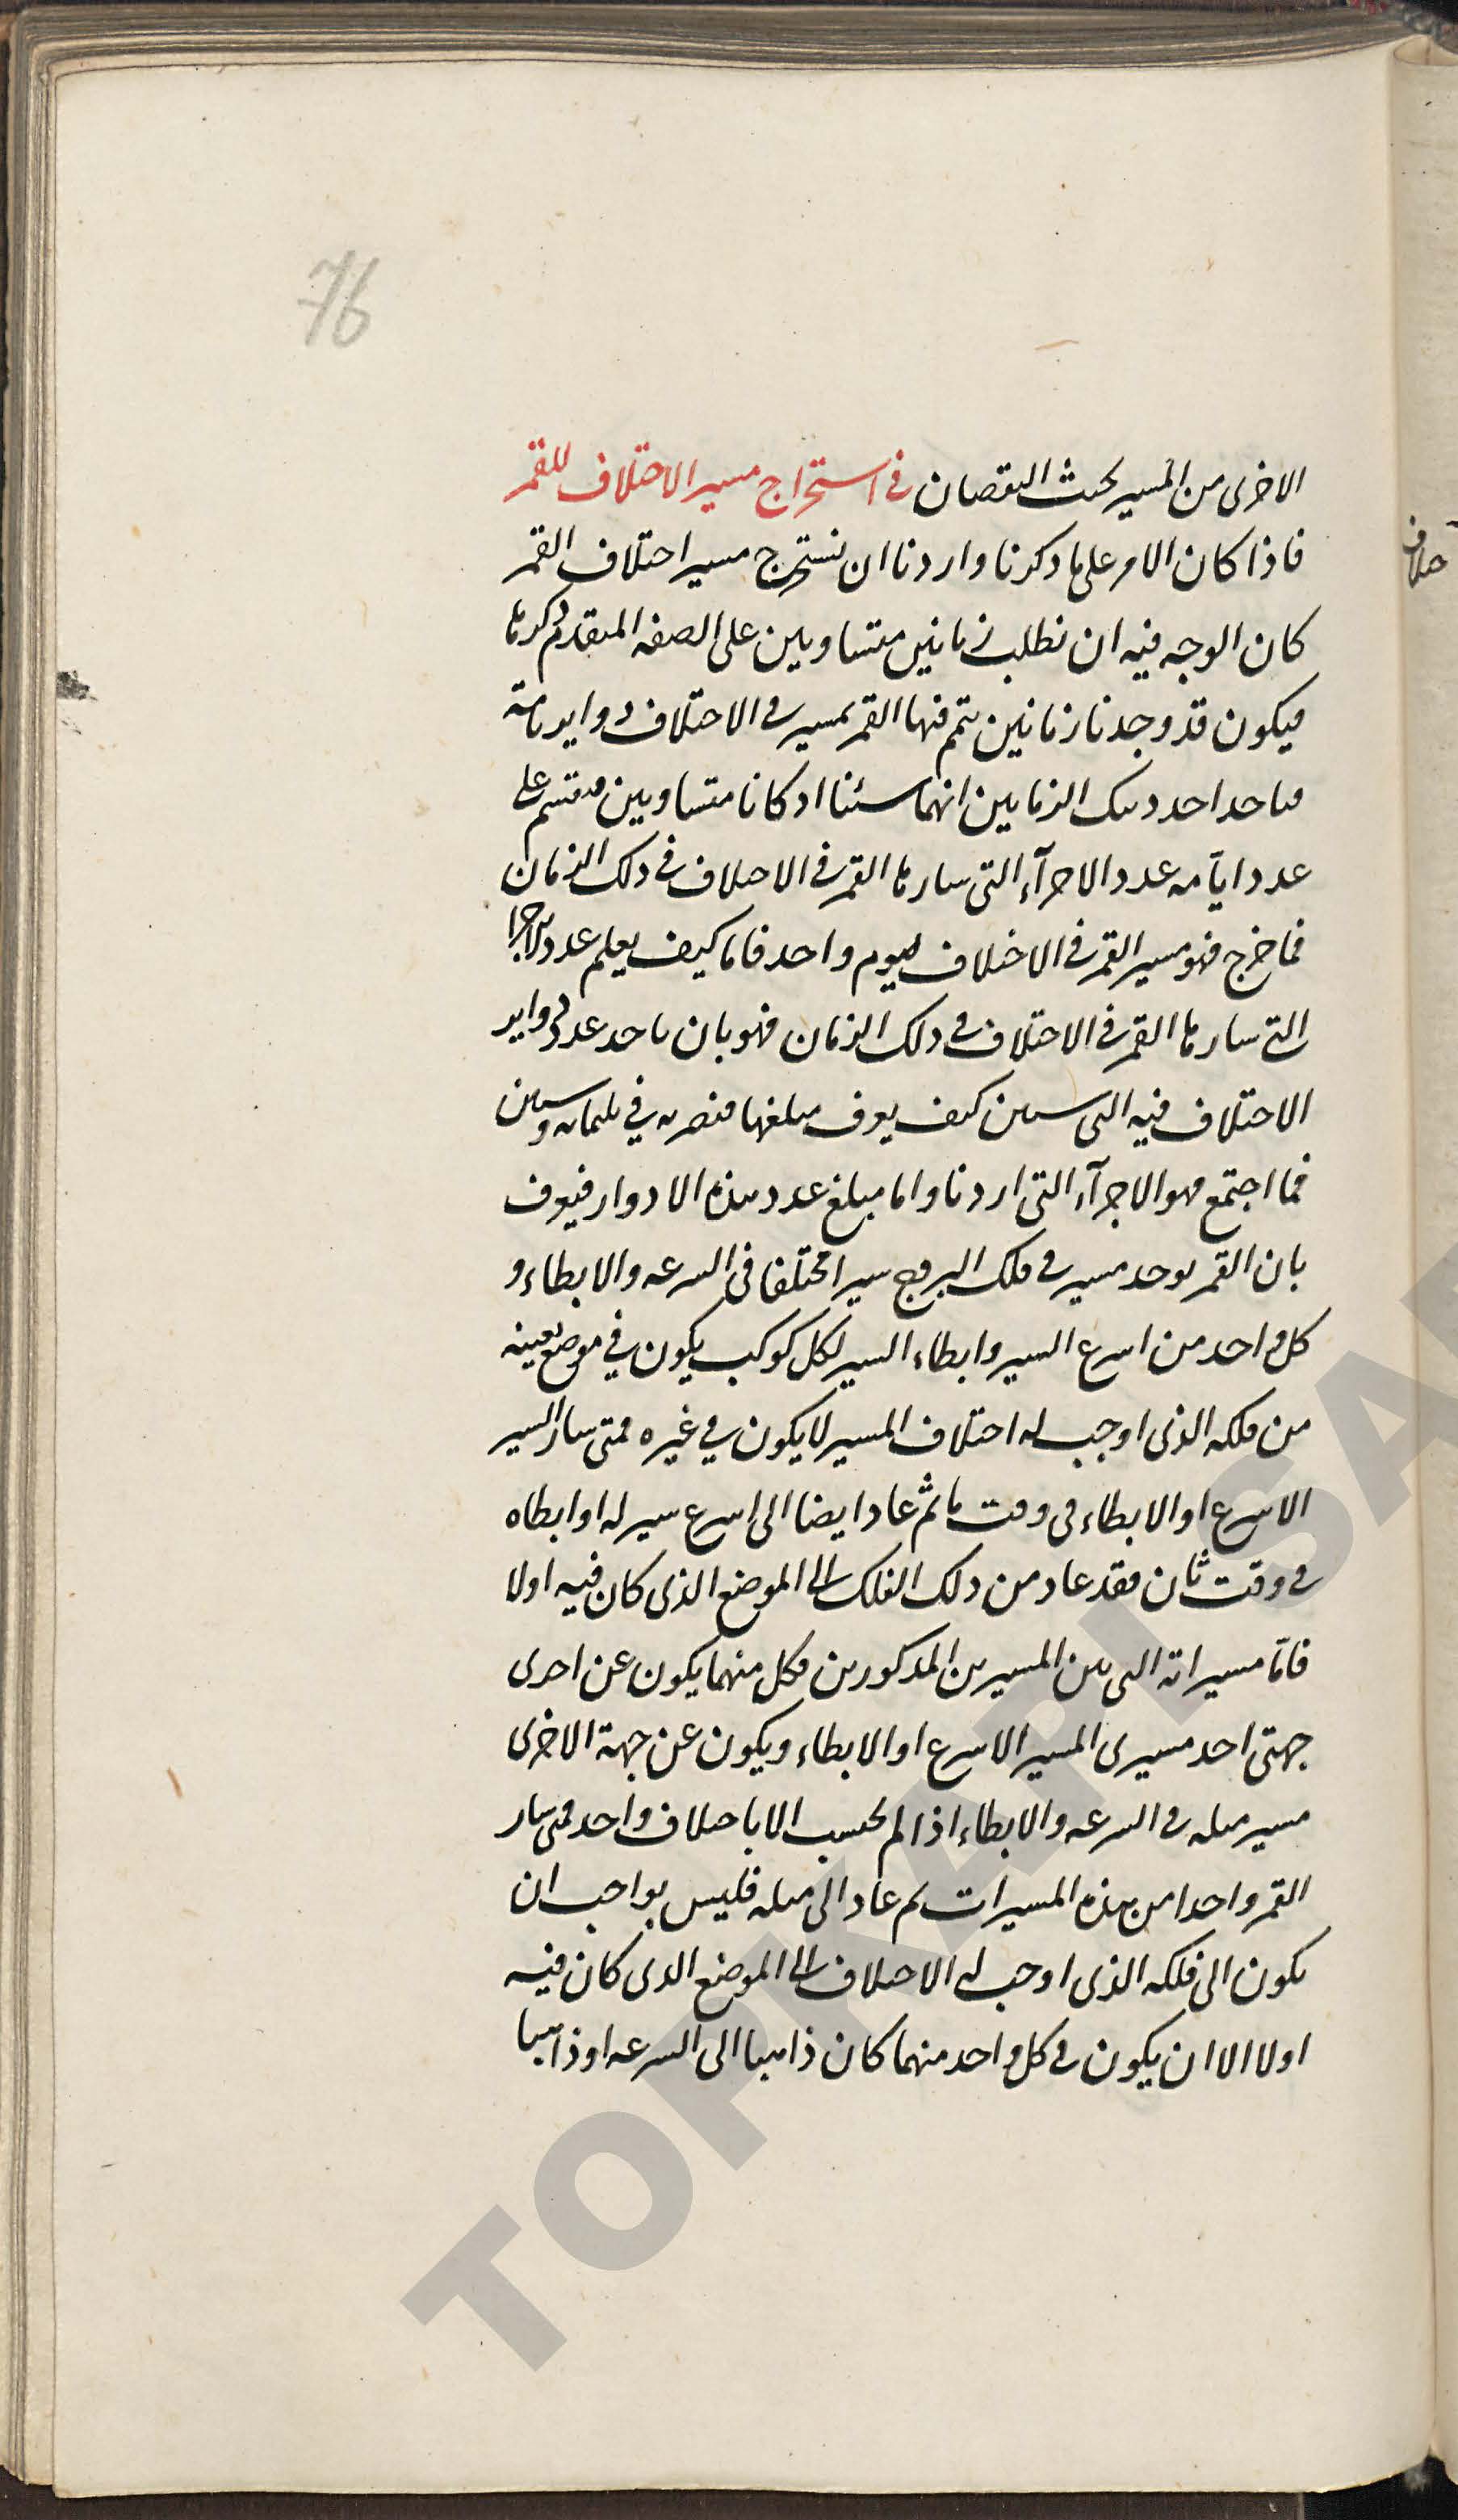 76
الاخرى من المسير بحيث النقصان في استخراج مسير الاختلاف للقمر
فاذا كان الامر على ما ذكرنا واردنا ان نستخرج مسير اختلاف القمر
كان الوجه فيه ان نطلب زمانين متساويين على الصفه المتقدم ذكرها
فيكون قد وجدنا زمانين يتمم فيها القمر بمسيره في الاختلاف دواير تامة
فناخذ احد ذينك الزمانين ايهما شئنا اذ كانا متساويين فنقسم على
عدد ايامه عدد الاجزآء التي سارها القمر في الاختلاف في ذلك الزمان
فما خرج فهو مسير القمر في الاختلاف ليوم واحد فاما كيف يعلم عدد الاجزا
التي سارها القمر في الاختلاف في ذلك الزمان فهو بان ناخذ عدد دواير
الاختلاف فيه التي سنبين كيف يعرف مبلغها فنضربه في ثلثمائه وستين
فما اجتمع فهو الاجزآء التي اردنا واما مبلغ عدد هذه الادوار فيعرف
بان القمر يوجد مسيره في فلك البروج سيرا مختلفا في السرعه والابطاء و
كل واحد من اسرع السير وابطاء السير لكل كوكب يكون في موضع بعينه
من فلكه الذى اوجب له اختلاف المسير لا يكون في غيره فمتى سار السير
الاسرع او الابطاء في وقت ما ثم عاد ايضا الى اسرع سير له او ابطاه
في وقت ثان فقد عاد من ذلك الفلك الى الموضع الذى كان فيه اولا
فامّا مسيراته التي بين المسيرين المذكورين فكل منهما يكون عن احدى
جهتى احد مسيرى المسير الاسرع او الابطاء ويكون عن جهة الاخرى
مسير مثله في السرعه والابطاء اذا لم يحسب الا باختلاف واحد فمتى سار
القمر واحدا من هذه المسيرات ثم عاد الى مثله فليس بواجب ان
يكون الى فلكه الذى اوجب له الاختلاف الى الموضع الذى كان فيه
اولا الا ان يكون في كل واحد منهما كان ذاهبا الى السرعه او ذاهبا